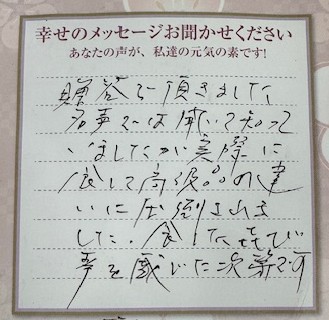 幸せのメッセージお聞かせください
あなたの声が、私達の元気の素です!
贈答で頂きました
名事では聞いて知って
いましたが実際に
食して高級品の違
いに圧倒されま
した。食した喜び
幸を感じた次第です